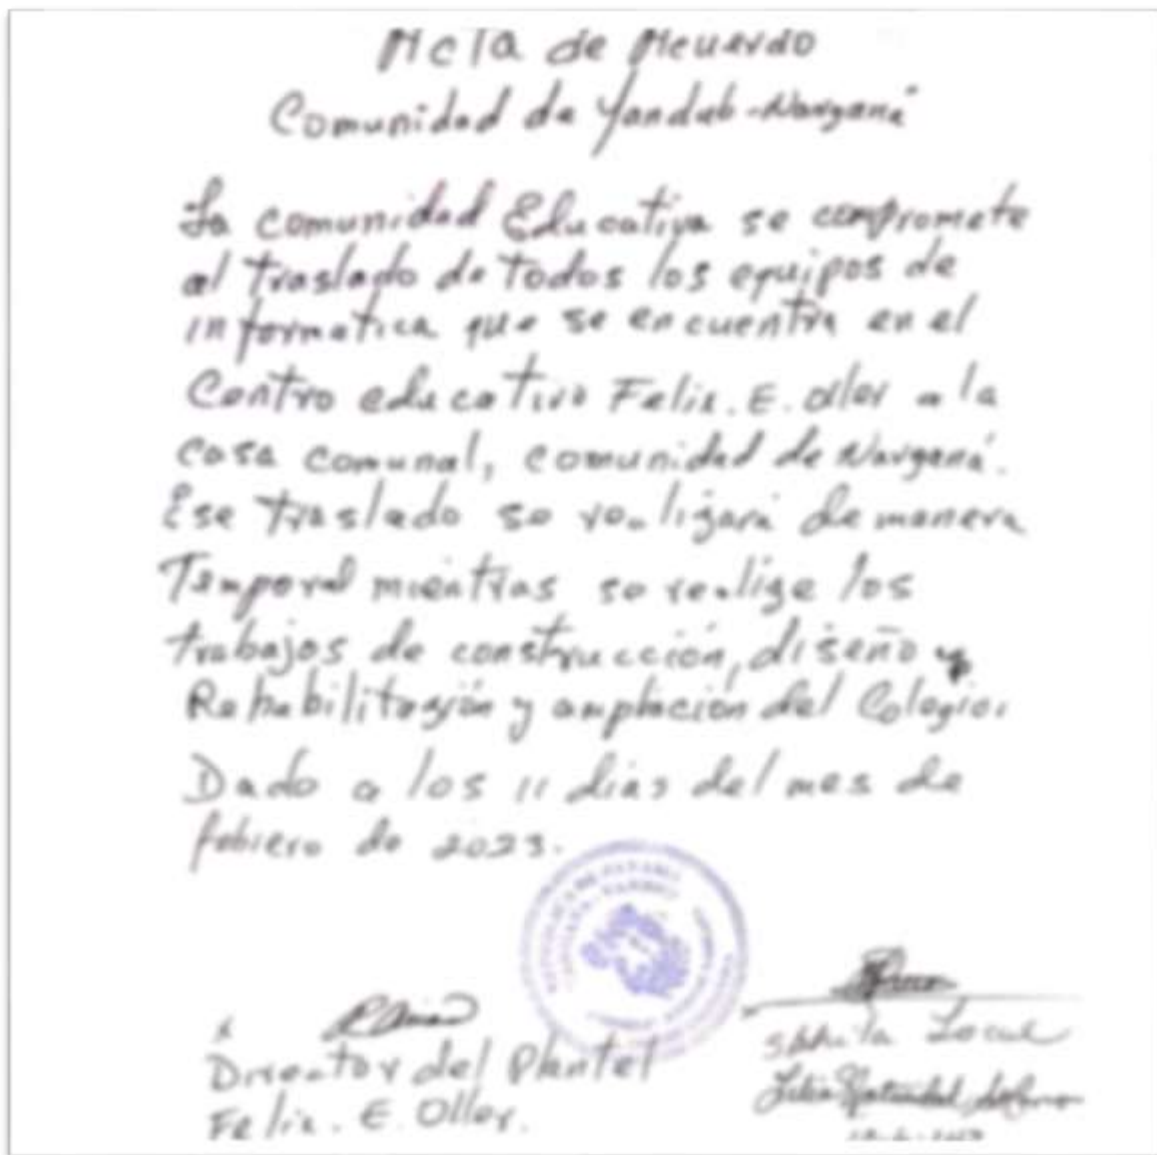 Acta de Acuerdo
Comunidad de Yandub-Narganá
La comunidad Educativa se compromete
al traslado de todos los equipos de
informatica que se encuentra en el
Centro educativo Felix. E. Oller a la
casa comunal, comunidad de Narganá.
Ese traslado se realizará de manera
Temporal mientras se realize los
trabajos de construcción, diseño y
Rehabilitación y ampliación del Colegio.
Dado a los 11 dias del mes de
febrero de 2023.
Director del Plantel
Felix. E. Oller.
Sahila Local